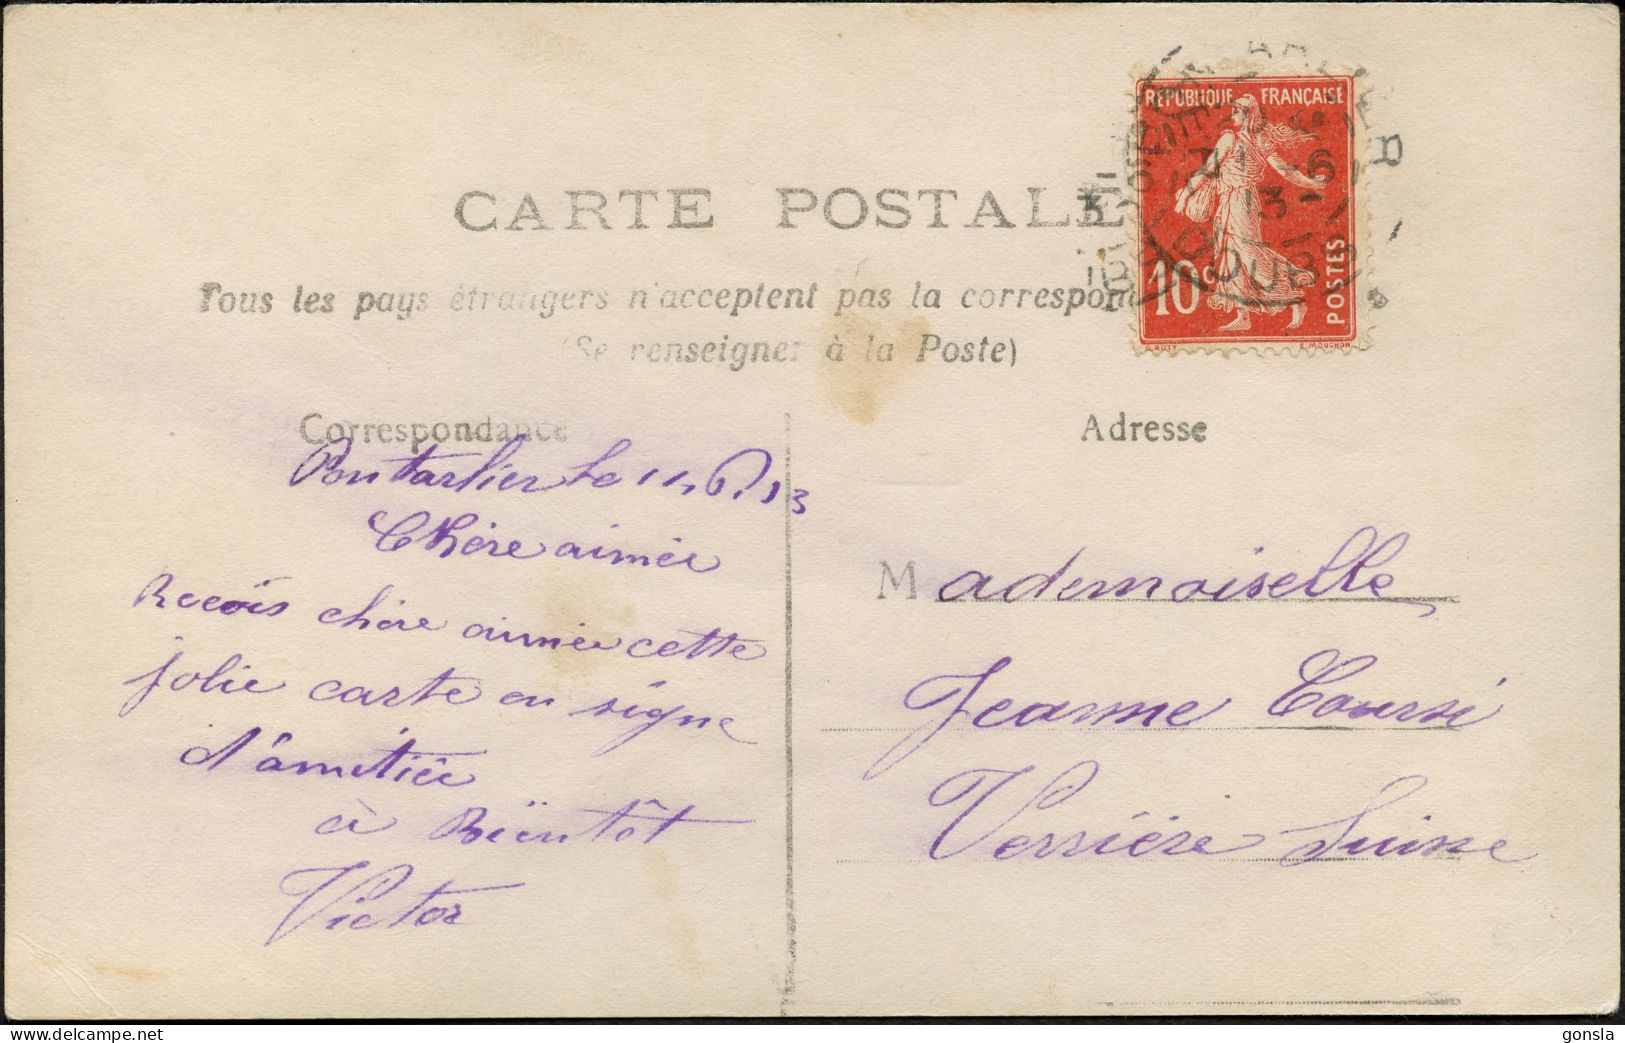 CARTE POSTALE
Tous les pays étrangers n'acceptent pas la correspon
(Se renseigner à la Poste)
RÉPUBLIQUE FRANÇAISE
10c
POSTES
O. ROTY
E. MOUCHON
-6
13
DOUBS
Correspondance
Pontarlier le 11, 6. 13
Chère aimée
Recois chère aimée cette
jolie carte en signe
d'âmitiée
à Bientôt
Victor
Adresse
Mademoiselle
Jeanne
Verrière Suisse
gonsla